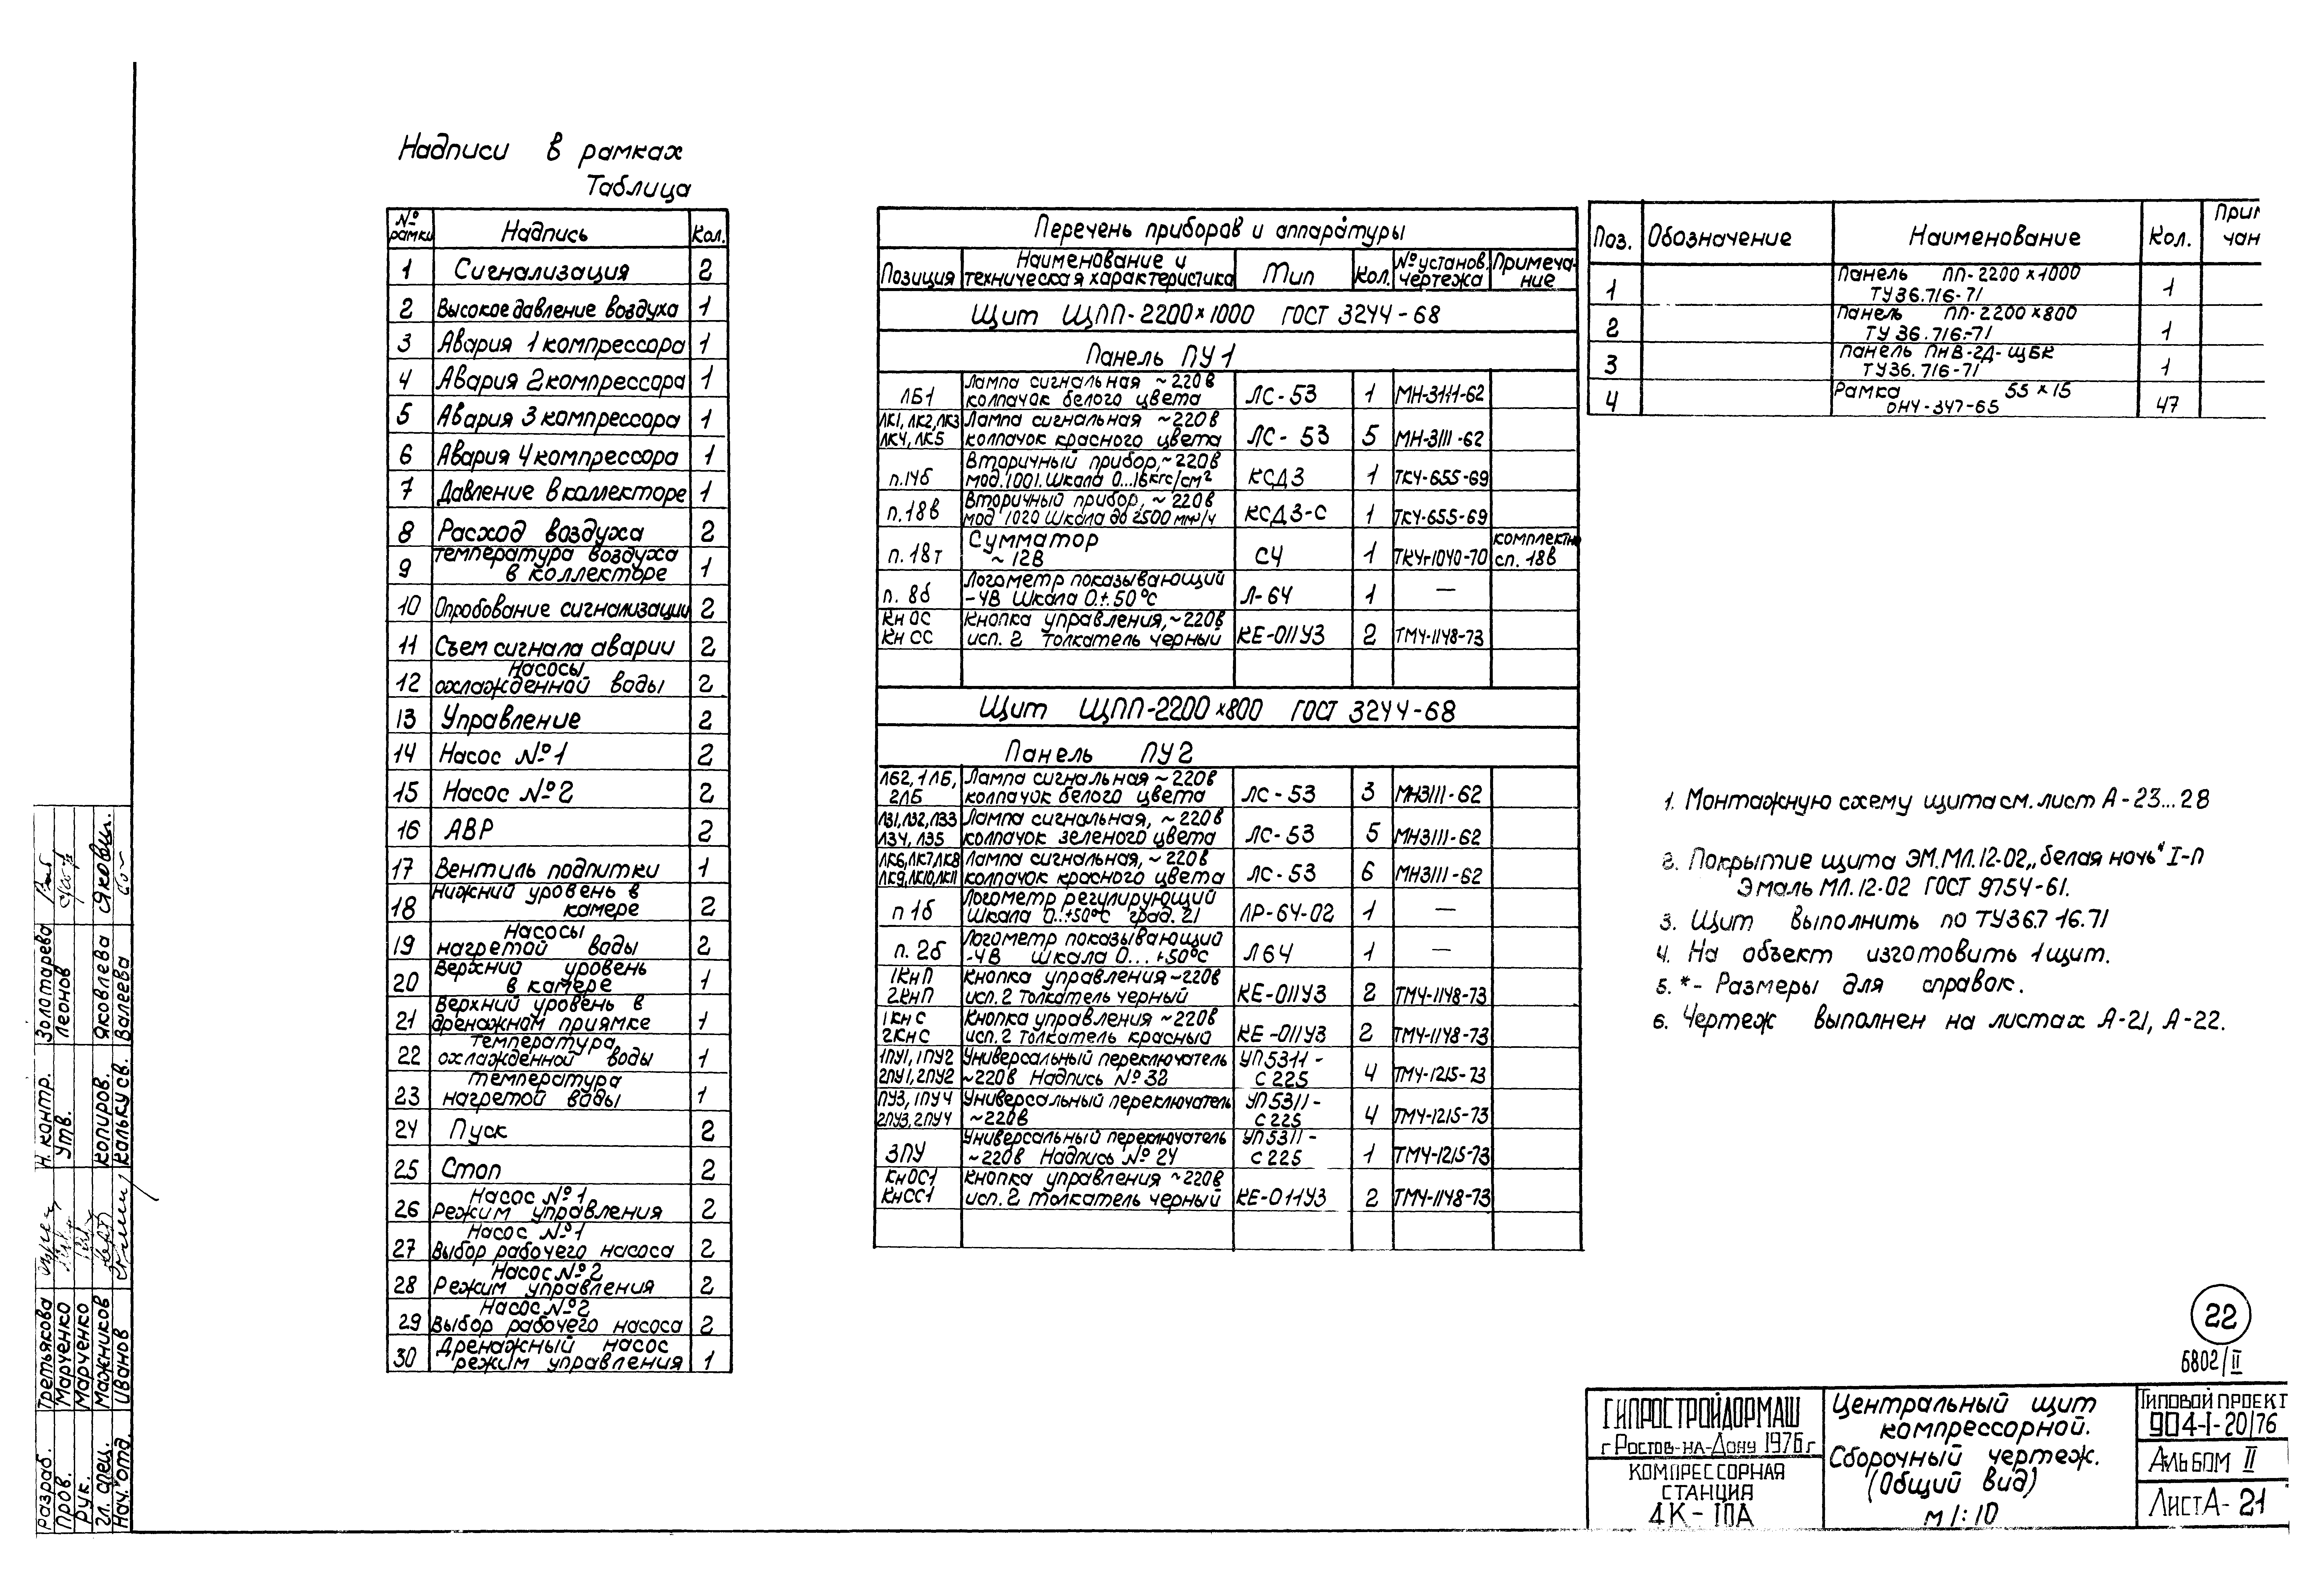 Надписи в рамках
Таблица
№ рамки Надпись Кол.
1 Сигнализация 2
2 Высокое давление воздуха 1
3 Авария 1 компрессора 1
4 Авария 2 компрессора 1
5 Авария 3 компрессора 1
6 Авария 4 компрессора 1
7 Давление в коллекторе 1
8 Расход воздуха 2
9 Температура воздуха в коллекторе 1
10 Опробование сигнализации 2
11 Съем сигнала аварии 2
12 Насосы охлажденной воды 2
13 Управление 2
14 Насос №1 2
15 Насос №2 2
16 АВР 2
17 Вентиль подпитки 1
18 Нижний уровень в камере 2
19 Насосы нагретой воды 2
20 Верхний уровень в камере 1
21 Верхний уровень в дренажном приямке 1
22 Температура охлажденной воды 1
23 Температура нагретой воды 1
24 Пуск 2
25 Стоп 2
26 Насос №1 Режим управления 2
27 Насос №1 Выбор рабочего насоса 2
28 Насос №2 Режим управления 2
29 Насос №2 Выбор рабочего насоса 2
30 Дренажный насос режим управления 1
Перечень приборов и аппаратуры
Позиция Наименование и техническая характеристика Тип Кол. № установ. чертежа Примечание
Щит ЩПП-2200×1000 ГОСТ 3244-68
Панель ПУ1
ЛБ1 Лампа сигнальная ~220в колпачок белого цвета ЛС-53 1 МН-3111-62
ЛК1, ЛК2, ЛК3 ЛК4, ЛК5 Лампа сигнальная ~220в колпачок красного цвета ЛС-53 5 МН-3111-62
п.14б Вторичный прибор, ~220в мод.1001. Шкала 0...16кгс/см² КСД3 1 ТК4-655-69
п.18в Вторичный прибор, ~220в мод 1020 Шкала до 2500 мм³/ч КСД3-С 1 ТК4-655-69
п.18т Сумматор ~12В СЧ 1 ТК4-1040-70 комплектно сп. 18в
п. 8б Логометр показывающий -4В Шкала 0.+.50°С Л-64 1 —
КнОС КнСС Кнопка управления, ~220в исп. 2 толкатель черный КЕ-011У3 2 ТМ4-1148-73
Щит ЩПП-2200×800 ГОСТ 3244-68
Панель ПУ2
ЛБ2, 1ЛБ, 2ЛБ Лампа сигнальная ~220в колпачок белого цвета ЛС-53 3 МН3111-62
ЛЗ1, ЛЗ2, ЛЗ3 ЛЗ4, ЛЗ5 Лампа сигнальная, ~220в колпачок зеленого цвета ЛС-53 5 МН3111-62
ЛК6, ЛК7, ЛК8 ЛК9, ЛК10, ЛК11 Лампа сигнальная, ~220в колпачок красного цвета ЛС-53 6 МН3111-62
п 1б Логометр регулирующий Шкала 0..+50°С град. 21 ЛР-64-02 1 —
п. 2б Логометр показывающий -4В шкала 0...+50°С Л64 1 —
1КнП 2КнП Кнопка управления ~220в исп. 2 толкатель черный КЕ-011У3 2 ТМ4-1148-73
1КнС 2КнС Кнопка управления ~220в исп. 2 толкатель красный КЕ-011У3 2 ТМ4-1148-73
1ПУ1, 1ПУ2 2ПУ1, 2ПУ2 Универсальный переключатель ~220в Надпись №32 УП5311-С225 4 ТМ4-1215-73
1ПУ3, 1ПУ4 2ПУ3, 2ПУ4 Универсальный переключатель ~220в УП5311-С225 4 ТМ4-1215-73
3ПУ Универсальный переключатель ~220в Надпись №24 УП5311-С225 1 ТМ4-1215-73
КнОС1 КнСС1 Кнопка управления ~220в исп. 2 толкатель черный КЕ-011У3 2 ТМ4-1148-73
Поз. Обозначение Наименование Кол. Прим чан
1 Панель ПП-2200×1000 ТУ36.716-71 1
2 Панель ПП-2200×800 ТУ 36.716-71 1
3 Панель ПнВ-2Д-ЩБК ТУ36.716-71 1
4 Рамка 55×15 ОН4-347-65 47
1. Монтажную схему щита см. лист А-23...28
2. Покрытие щита ЭМ.МЛ.12-02 „белая ночь" I-П
Эмаль МЛ.12-02 ГОСТ 9754-61.
3. Щит выполнить по ТУ36.716.71
4. На объект изготовить 1 щит.
5. *- Размеры для справок.
6. Чертеж выполнен на листах А-21, А-22.
22
6802/II
ГИПРОСТРОЙДОРМАШ
г Ростов-на-Дону 1976г
КОМПРЕССОРНАЯ
СТАНЦИЯ
4К-10А
Центральный щит
компрессорной.
Сборочный чертеж.
(Общий вид)
м 1:10
Типовой проект
904-1-20/76
Альбом II
Лист А-21
Разраб. Третьякова Н. контр. Золотарева
Пров. Марченко Утв. Леонов
Рук. Марченко
Гл. спец. Мажников Копиров. Яковлева
Нач. отд. Иванов Кальку св. Валеева